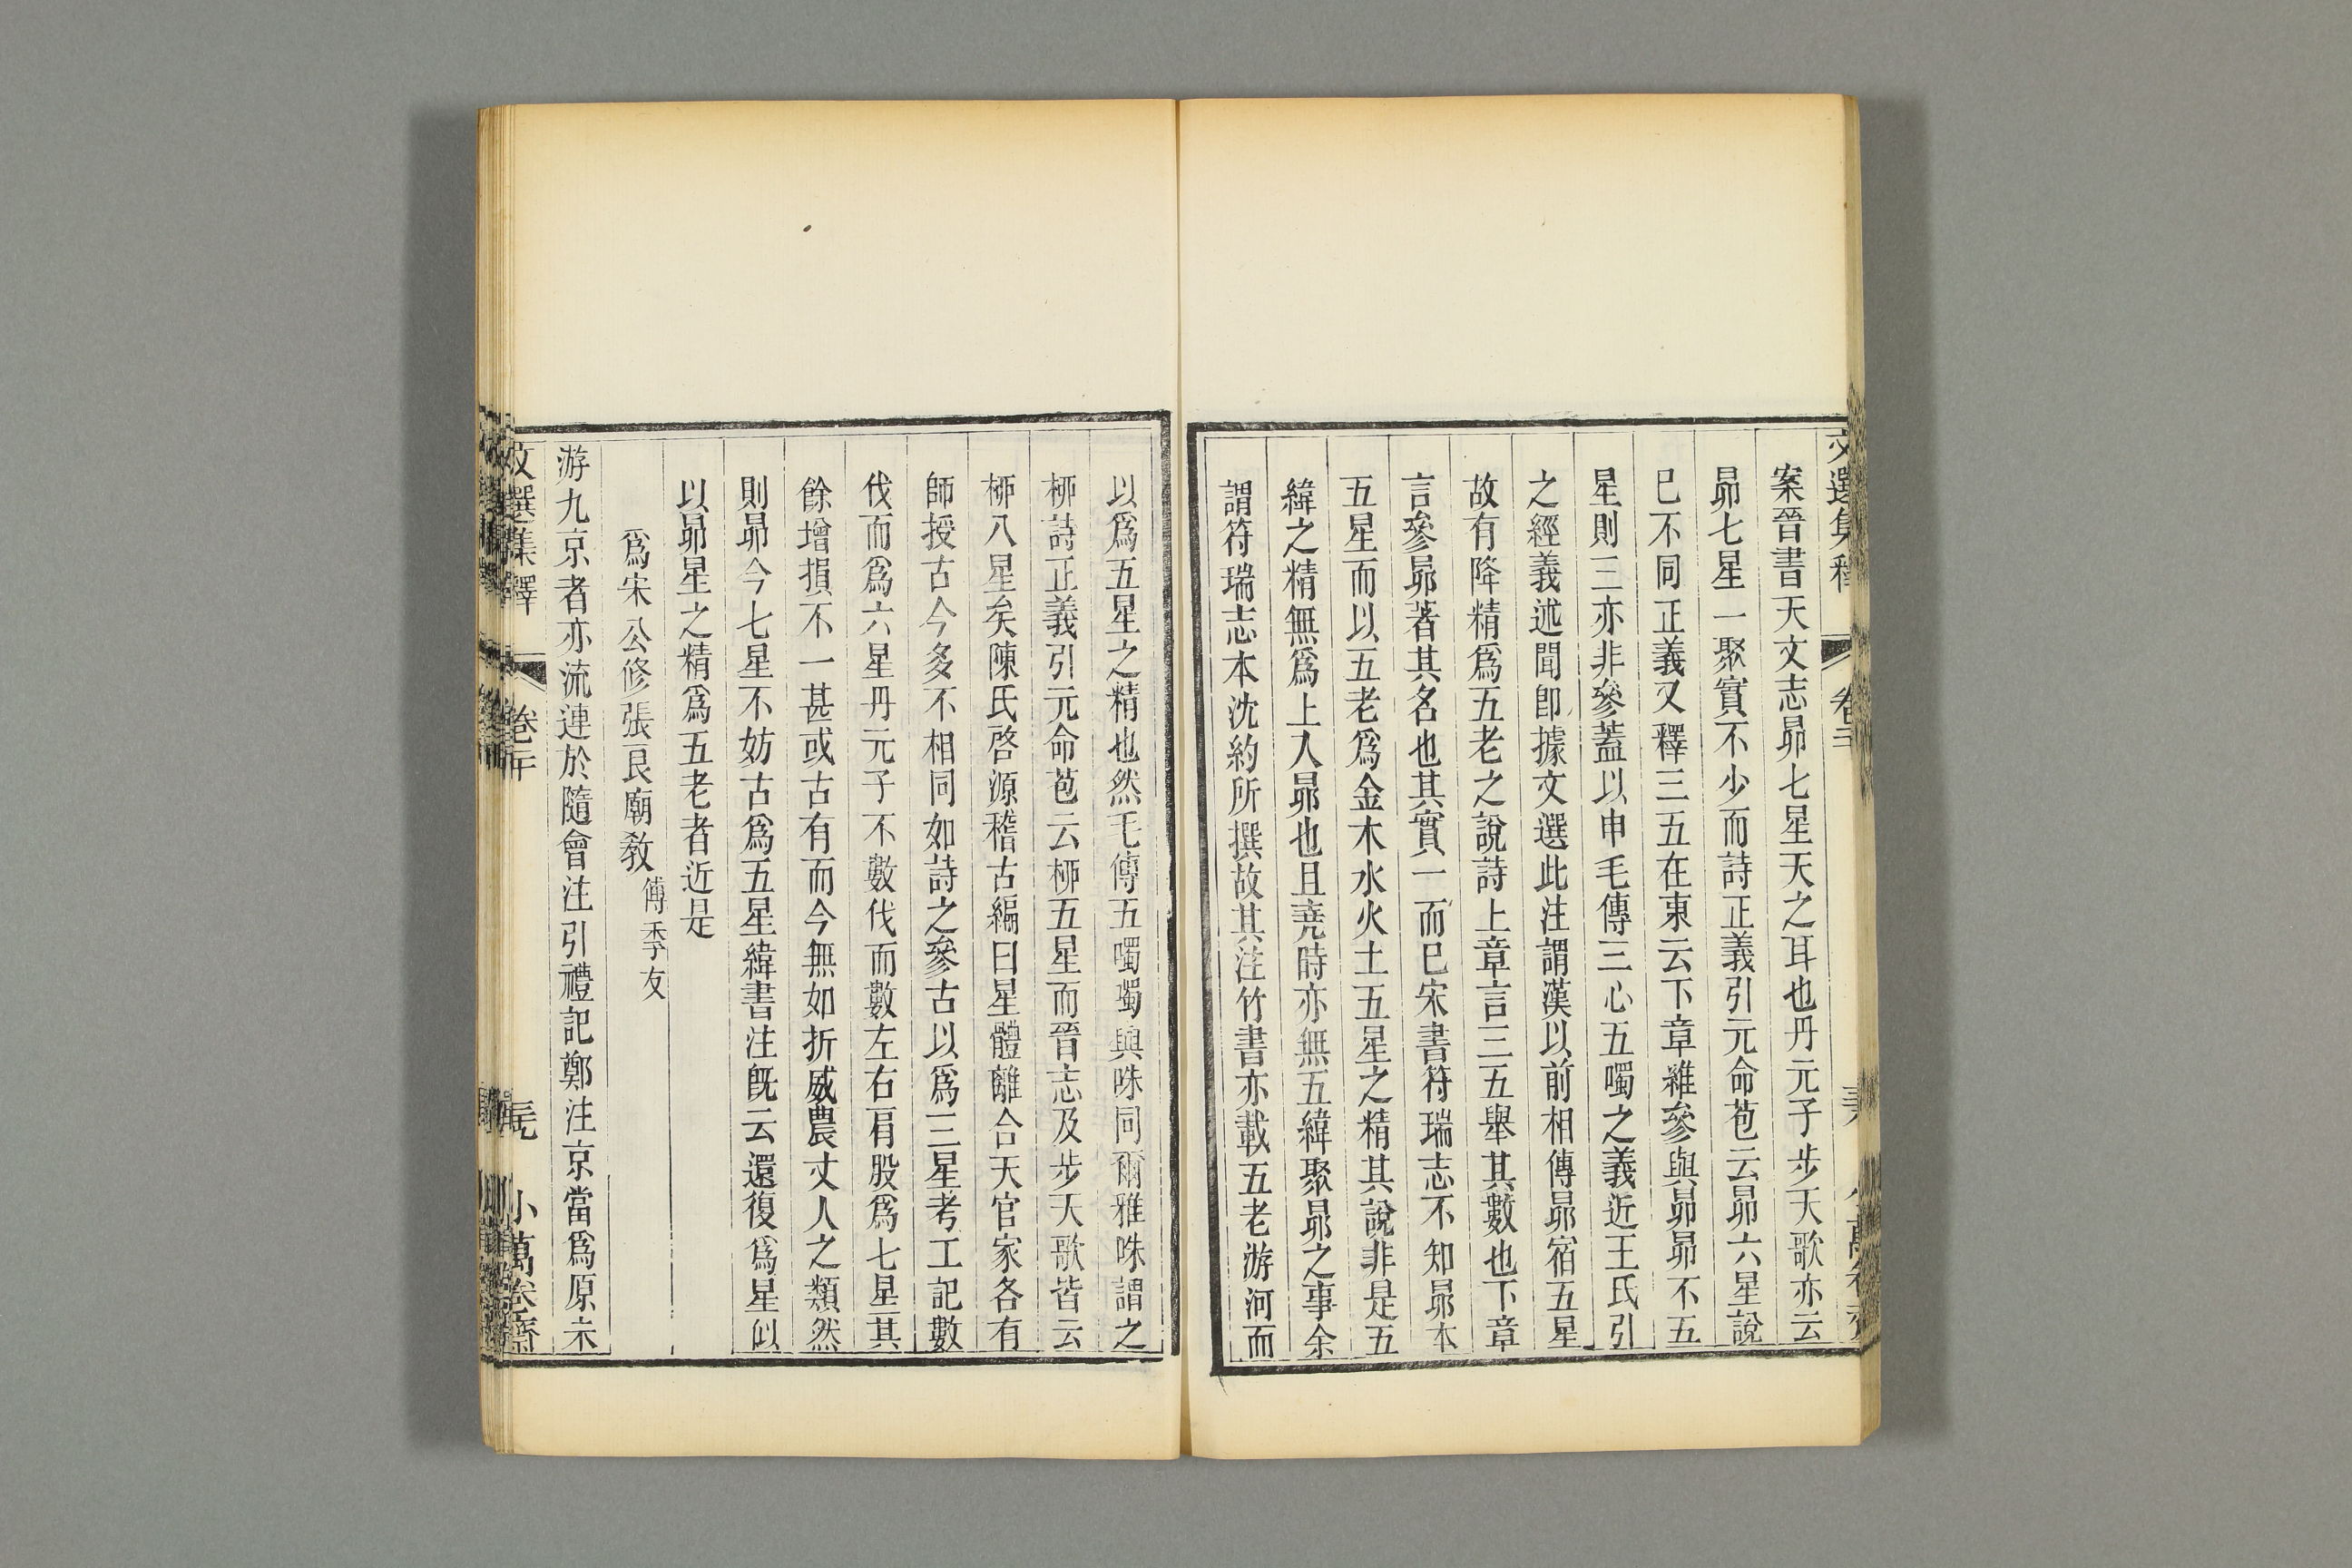 文選集釋 卷二十
案晉書天文志昴七星天之耳也丹元子步天歌亦云
昴七星一聚實不少而詩正義引元命苞云昴六星說
已不同正義又釋三五在東云下章維參與昴昴不五
星則三亦非參蓋以申毛傳三心五噣之義近王氏引
之經義述聞卽據文選此注謂漢以前相傳昴宿五星
故有降精爲五老之說詩上章言三五舉其數也下章
言參昴著其名也其實一而已宋書符瑞志不知昴本
五星而以五老爲金木水火土五星之精其說非是五
緯之精無爲上入昴也且堯時亦無五緯聚昴之事余
謂符瑞志本沈約所撰故其注竹書亦載五老游河而
以爲五星之精也然毛傳五噣噣與咮同爾雅咮謂之
柳詩正義引元命苞云柳五星而晉志及步天歌皆云
柳八星矣陳氏啓源稽古編曰星體離合天官家各有
師授古今多不相同如詩之參古以爲三星考工記數
伐而爲六星丹元子不數伐而數左右肩股爲七星其
餘增損不一甚或古有而今無如折威農丈人之類然
則昴今七星不妨古爲五星緯書注旣云還復爲星似
以昴星之精爲五老者近是
爲宋公修張良廟敎 傅季友
游九京者亦流連於隨會注引禮記鄭注京當爲原未
文選集釋 卷二十 小萬卷齋